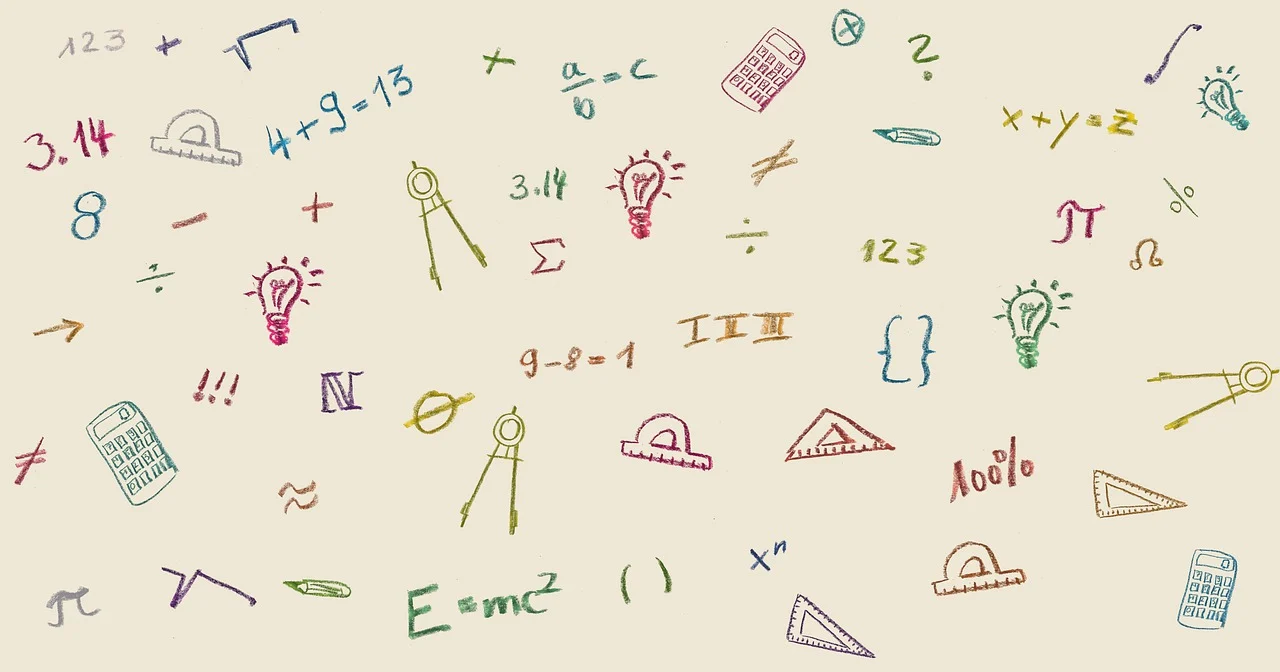 123 + √
+
a/b = c
?
∫
3.14
4+9=13
x+y=z
≠
8
−
+
3.14
π
%
÷
Σ
÷
123
Ω
→
I II III
{ }
9-8=1
!!!
ℕ
∅
≠
≈
100%
π
√
E=mc²
( )
xⁿ